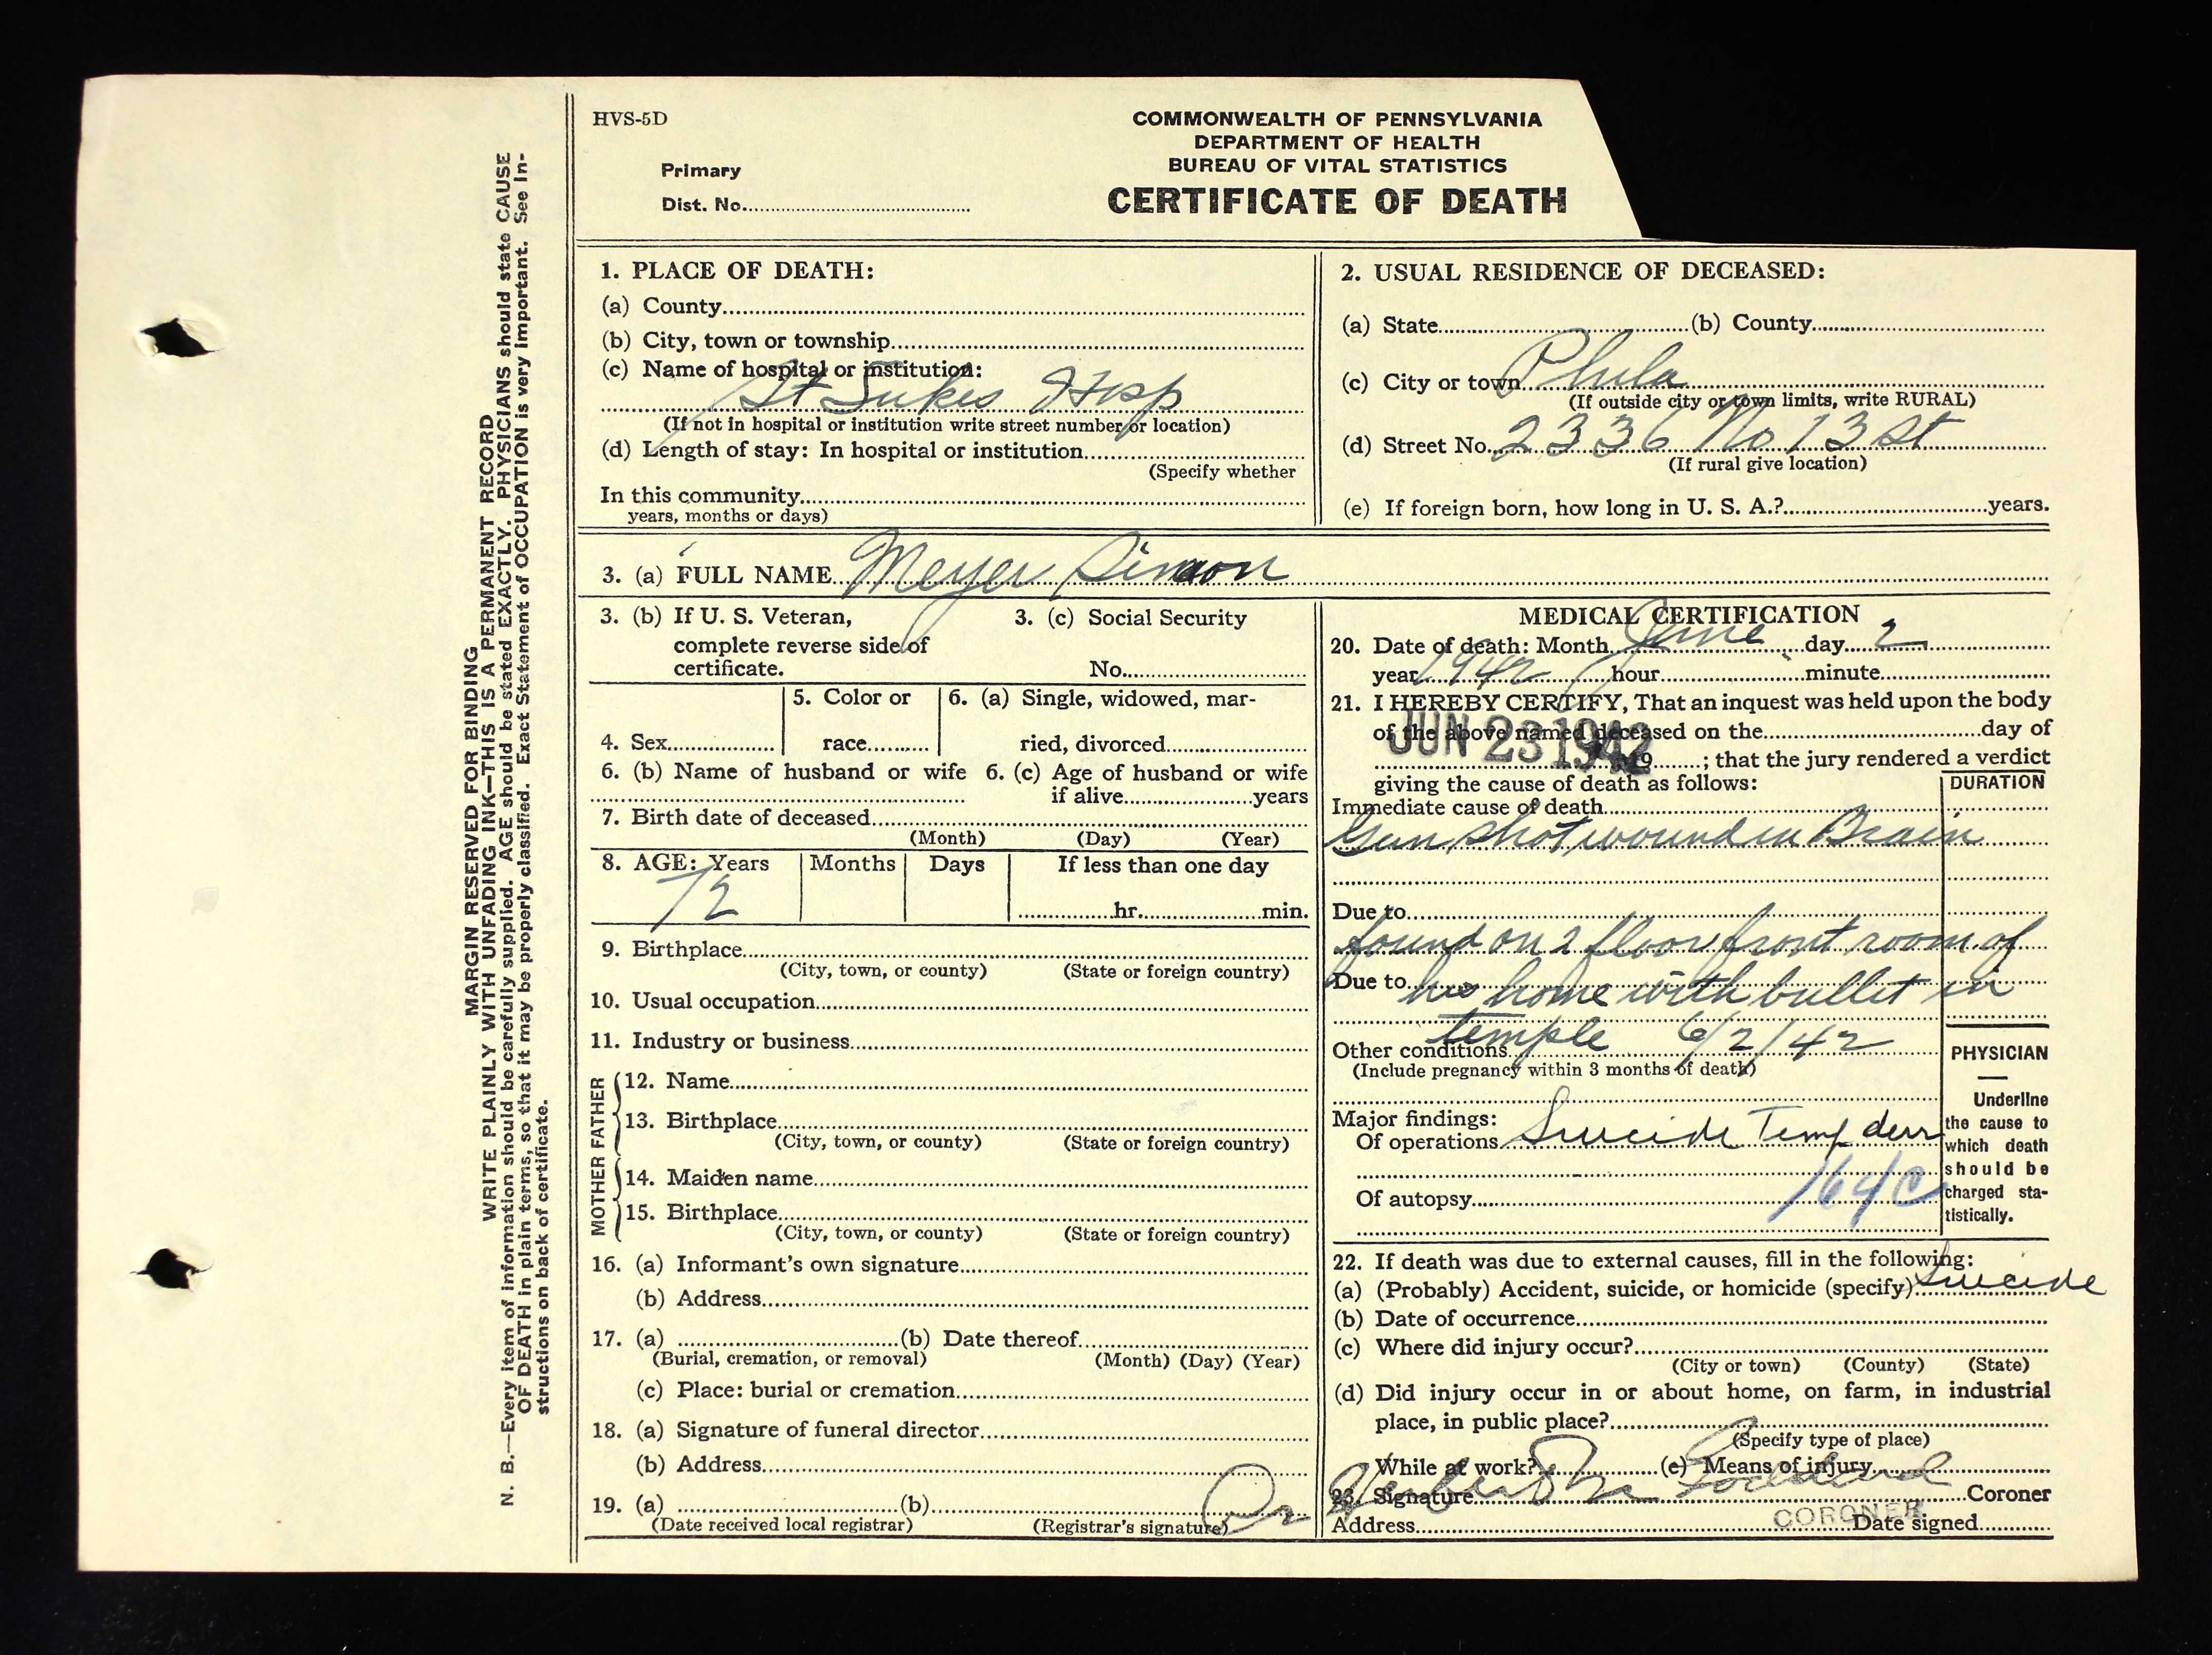 HVS-5D
COMMONWEALTH OF PENNSYLVANIA
DEPARTMENT OF HEALTH
BUREAU OF VITAL STATISTICS
CERTIFICATE OF DEATH
Primary
Dist. No.
MARGIN RESERVED FOR BINDING
WRITE PLAINLY WITH UNFADING INK—THIS IS A PERMANENT RECORD
N. B.—Every item of information should be carefully supplied. AGE should be stated EXACTLY. PHYSICIANS should state CAUSE
OF DEATH in plain terms, so that it may be properly classified. Exact Statement of OCCUPATION is very important. See In-
structions on back of certificate.
1. PLACE OF DEATH:
(a) County
(b) City, town or township
(c) Name of hospital or institution:
St Lukes Hosp
(If not in hospital or institution write street number or location)
(d) Length of stay: In hospital or institution
(Specify whether
In this community
years, months or days)
2. USUAL RESIDENCE OF DECEASED:
(a) State (b) County
(c) City or town Phila
(If outside city or town limits, write RURAL)
(d) Street No. 2336 No 13 St
(If rural give location)
(e) If foreign born, how long in U. S. A.? years.
3. (a) FULL NAME Meyer Simon
3. (b) If U. S. Veteran,
complete reverse side of
certificate.
3. (c) Social Security
No.
4. Sex
5. Color or
race
6. (a) Single, widowed, mar-
ried, divorced
6. (b) Name of husband or wife
6. (c) Age of husband or wife
if alive years
7. Birth date of deceased
(Month) (Day) (Year)
8. AGE: Years Months Days If less than one day
72
hr. min.
9. Birthplace
(City, town, or county) (State or foreign country)
10. Usual occupation
11. Industry or business
FATHER
12. Name
13. Birthplace
(City, town, or county) (State or foreign country)
MOTHER
14. Maiden name
15. Birthplace
(City, town, or county) (State or foreign country)
16. (a) Informant's own signature
(b) Address
17. (a) (b) Date thereof
(Burial, cremation, or removal) (Month) (Day) (Year)
(c) Place: burial or cremation
18. (a) Signature of funeral director
(b) Address
19. (a) (b)
(Date received local registrar) (Registrar's signature)
MEDICAL CERTIFICATION
20. Date of death: Month June day 2
year 1942 hour minute
21. I HEREBY CERTIFY, That an inquest was held upon the body
of the above named deceased on the day of
JUN 23 1942
19 ; that the jury rendered a verdict
giving the cause of death as follows:
DURATION
Immediate cause of death
Gun shot wound in Brain
Due to
found on 2 floor front room of
Due to his home with bullet in
temple 6/2/42
Other conditions
(Include pregnancy within 3 months of death)
PHYSICIAN
Underline
the cause to
which death
should be
charged sta-
tistically.
Major findings:
Of operations Suicide Temp derr
164C
Of autopsy
22. If death was due to external causes, fill in the following:
(a) (Probably) Accident, suicide, or homicide (specify) Suicide
(b) Date of occurrence
(c) Where did injury occur?
(City or town) (County) (State)
(d) Did injury occur in or about home, on farm, in industrial
place, in public place?
(Specify type of place)
While at work? (e) Means of injury
23. Signature Dr Herbert M Goddard Coroner
CORONER
Address Date signed